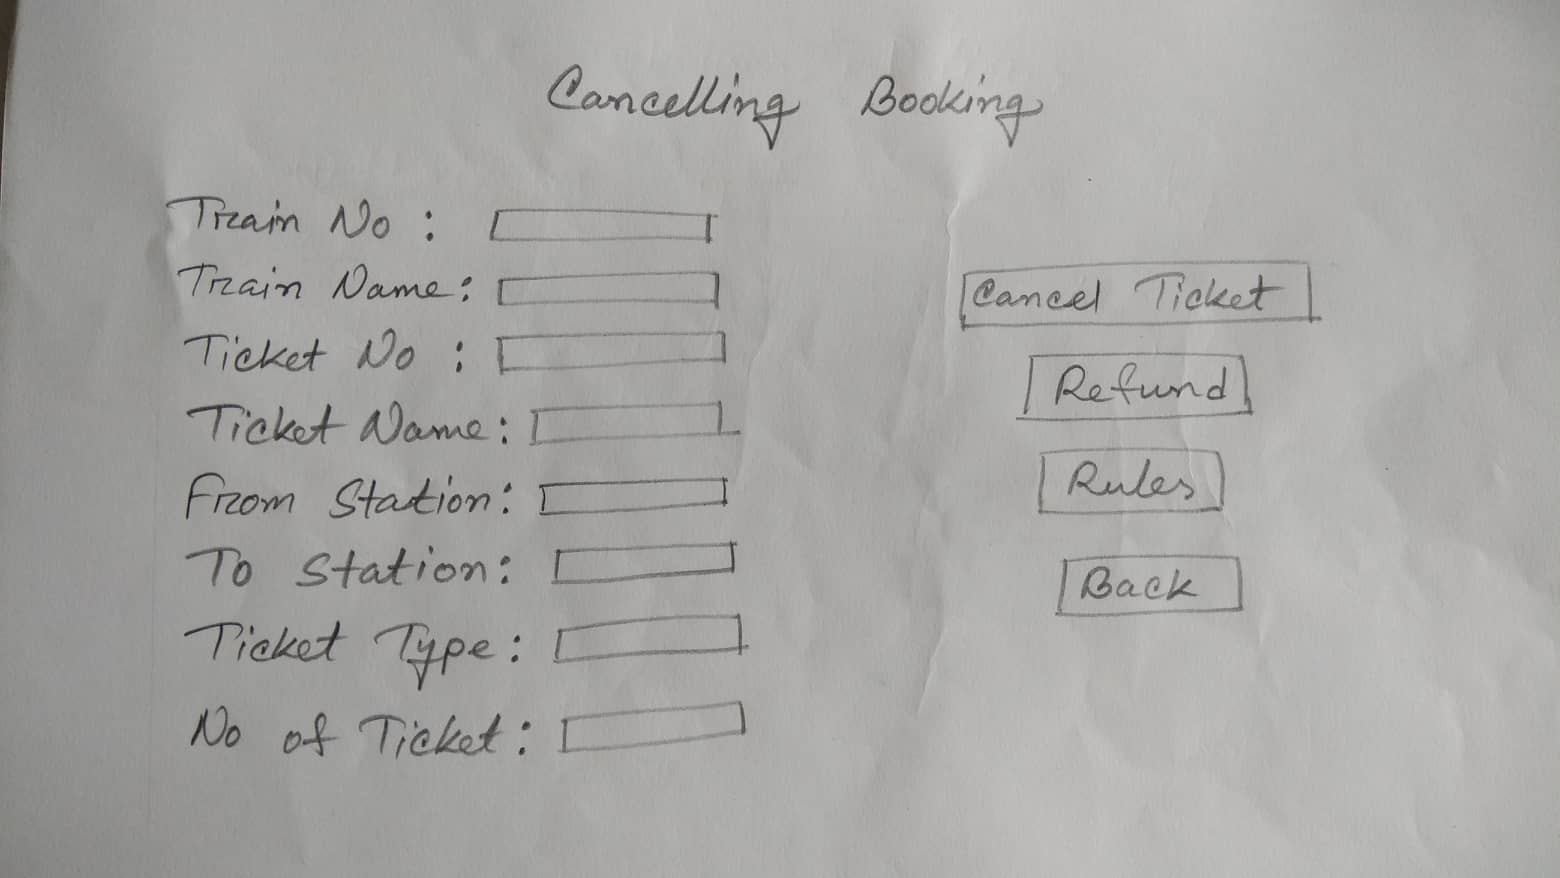 Cancelling Booking
Train No :
Train Name :
Ticket No :
Ticket Name :
From Station :
To Station :
Ticket Type :
No of Ticket :
Cancel Ticket
Refund
Rules
Back